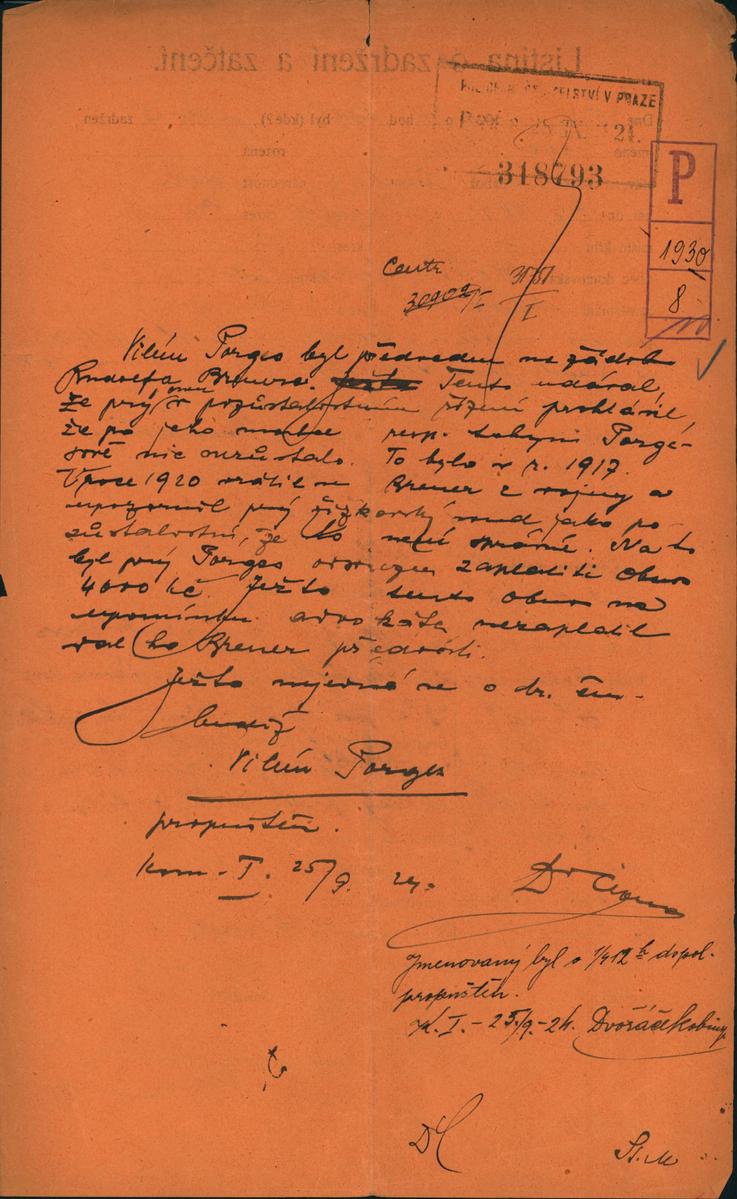 Listina o zadržení a zatčení.
ŘEDITELSTVÍ V PRAZE
24.
318793
P
1930
8
30902/I
I
Vilém Porges byl předveden na žádost
Rudolfa Brenera. Tento udával,
že prý onen v pozůstalostním řízení prohlásil,
že po jeho matce resp. babyni Porge-
sové nic nezůstalo. To bylo v r. 1917.
V roce 1920 vrátil se Brener z vojny a
upozornil prý žižkovský soud, jako po-
zůstalostní, že to není správné. Na to
byl prý Porges odsouzen zaplatiti obnos
4000 Kč. Ježto tento obnos na
upomínku advokáta nezaplatil
dal ho Brener předvésti.
Ježto nejedná se o tr. čin
budiž
Vilém Porges
propuštěn.
kom - I. 25/9. 24.
Dr
Jmenovaný byl o 1/4 12 h dopol.
propuštěn.
K. I. - 25/9 - 24. Dvořáček